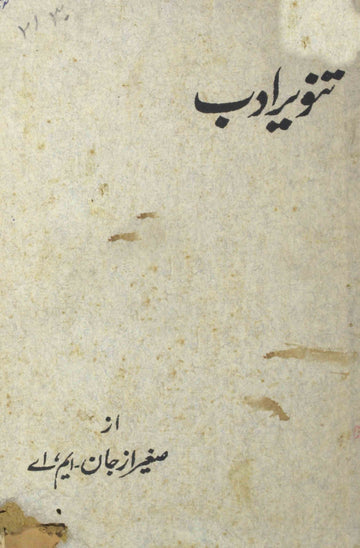 ۲۱۳۰
تنویر ادب
از
صغیر از جان۔ ایم، اے